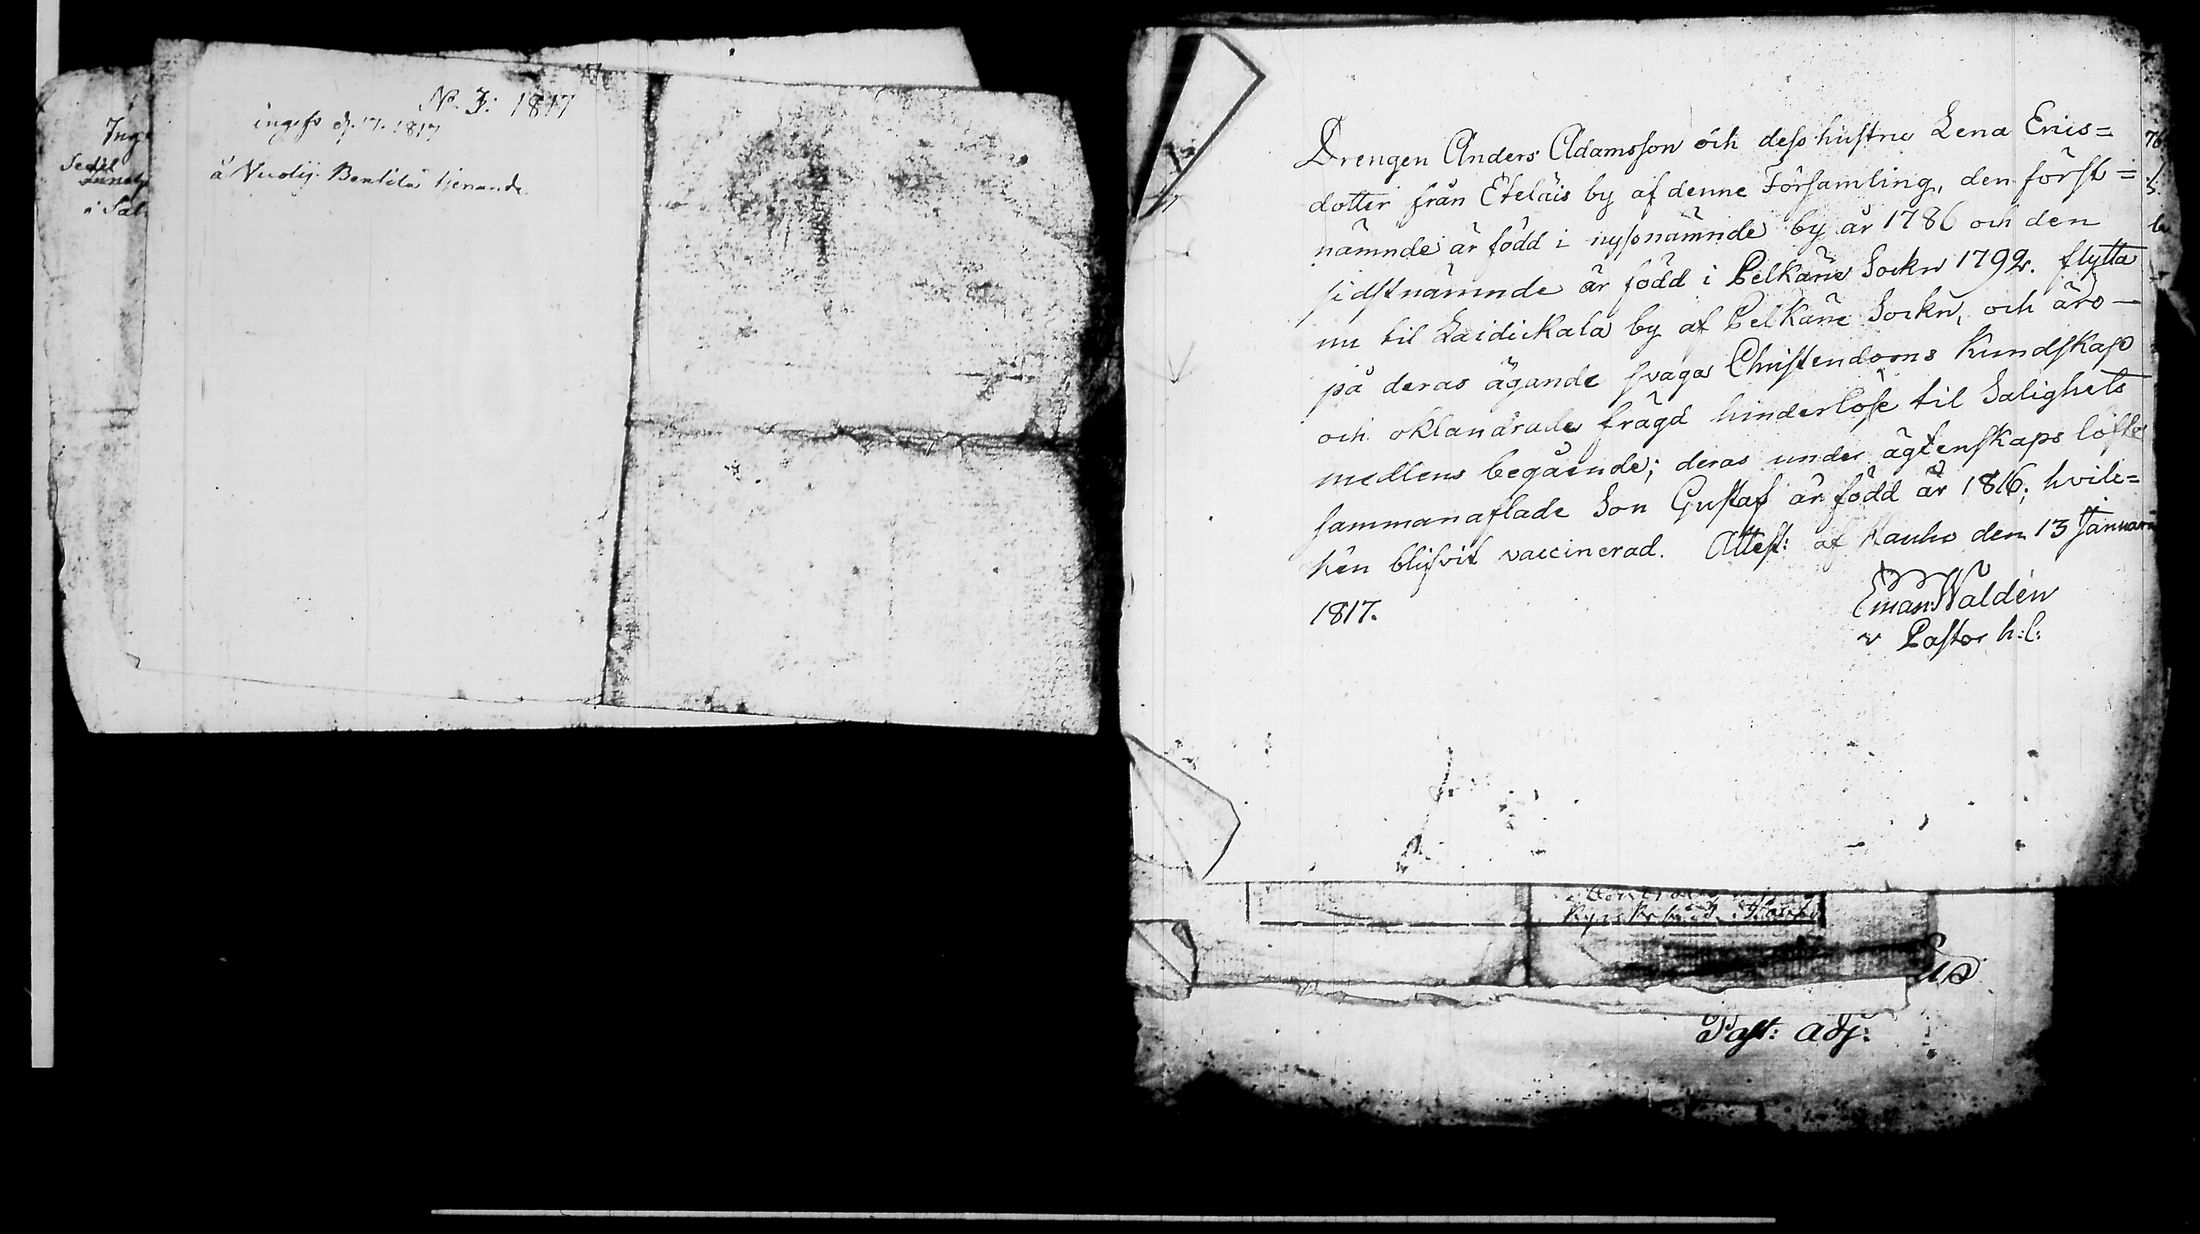 No. 3: 1817
1817
Bentilä tienande
Sedel
Drengen Anders Adamsson och dess hustru Lena Erics=
dotter från Eteläis by af denne Församling, den först=
nämnde är född i nyssnämnde by år 1786 och den
sidstnämnde är född i Pelkäne Sockn 1792. flytta
nu til Laidickala by af Pelkäne Sockn, och äro
på deras ägande svaga Christendoms Kundskap
och oklandrade frägd hinderlöse til Salighets
medlens begående; deras under ägtenskaps löfte
sammanaflade Son Gustaf är född år 1816; hvil=
ken blifvit vaccinerad. Attest: af Hauho den 13 Januarii
1817.
Eman: Waldén
v Pastor h: l:
Past: Adj: